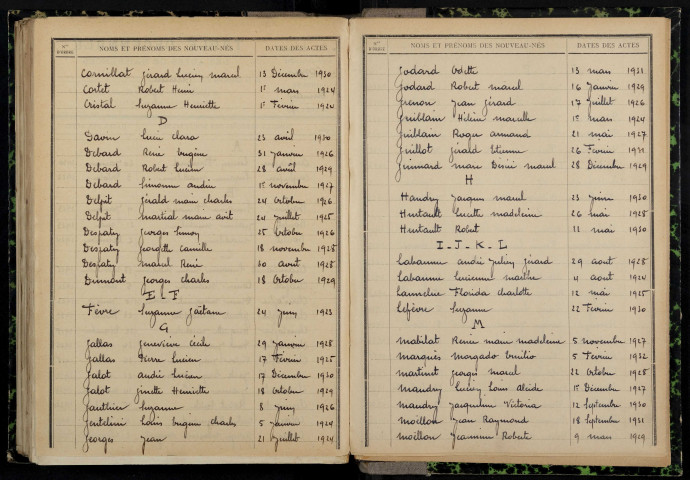 Nos D'ORDRE NOMS ET PRÉNOMS DES NOUVEAU-NÉS DATES DES ACTES
Cornillat Gérard Lucien marcel 13 Décembre 1930
Cortet Robert Henri 1er mars 1924
Cristal Suzanne Henriette 1er Février 1924
D
Lucie Clara 23 avril 1930
Débard René Eugène 31 Janvier 1926
Débard Robert Lucien 28 avril 1929
Débard Simonne andrée 1er novembre 1927
Delpit Gérald marie charles 24 octobre 1926
Delpit martial marie 24 Juillet 1925
Despaty Georges Simon 25 octobre 1926
Despaty Georgette camille 18 novembre 1928
Despaty marcel René 30 août 1928
Dumont Georges charles 18 Octobre 1929
E - F
Fèvre Suzanne Gaëtane 24 Juin 1923
G
Gallas Geneviève Cécile 29 Janvier 1928
Gallas Pierre Lucien 17 Février 1925
Galot andré Lucien 17 Décembre 1930
Galot Ginette Henriette 18 octobre 1929
Gauthier Suzanne 8 Juin 1926
Gentelini Louis Eugène charles 5 Janvier 1924
Georges Jean 21 Juillet 1924
Nos D'ORDRE NOMS ET PRÉNOMS DES NOUVEAU-NÉS DATES DES ACTES
Godard Odette 13 mars 1921
Godard Robert marcel 16 Janvier 1929
Grenon Jean Gérard 17 Juillet 1926
Guiblain Hélène marcelle 1er mars 1924
Guiblain Roger armand 21 mai 1927
Guillot Gérald Etienne 26 Février 1931
Guinnard marc Désiré marcel 28 Décembre 1929
H
Haudry Jacques marcel 23 Juin 1930
Hurtault Lucette madeleine 26 mai 1928
Hurtault Robert 11 mai 1930
I - J - K - L
Labaume andré Julien Gérard 29 août 1928
Labaume Lucienne marthe 4 août 1924
Florida charlotte 12 mai 1925
Lefèvre Suzanne 22 Février 1930
M
mabilat Renée marie madeleine 5 novembre 1927
marquès morgado Emilio 5 Février 1932
martinet Georges marcel 22 octobre 1925
maudry Lucien Louis alcide 1er Décembre 1927
maudry Jacqueline Victoria 12 Septembre 1930
moëllon Jean Raymond 18 Septembre 1931
moëllon Jeannine Roberte 9 mars 1929